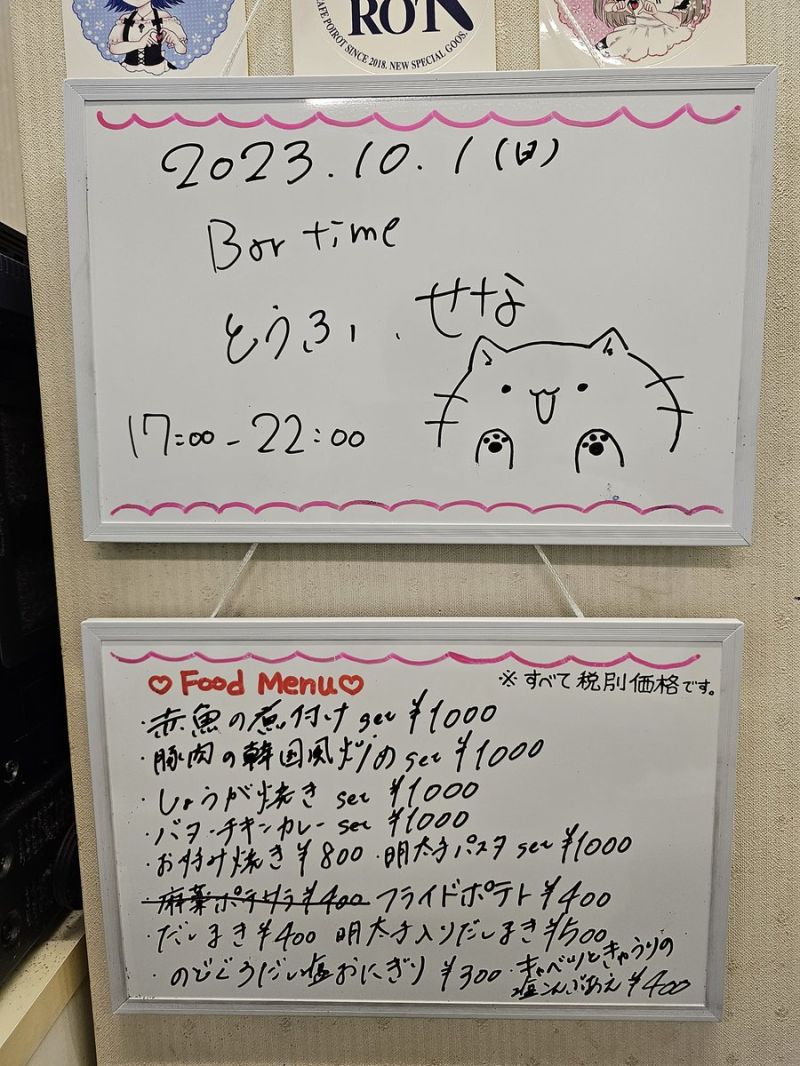 ROT
CAFE POIROT SINCE 2018. NEW SPECIAL GOOS.
2023.10.1(日)
Bar time
とうふ、せな
17:00-22:00
♡Food Menu♡
※すべて税別価格です。
・赤魚の煮付け set ¥1000
・豚肉の韓国風炒め set ¥1000
・しょうが焼き set ¥1000
・バターチキンカレー set ¥1000
・お好み焼き ¥800 ・明太子パスタ set ¥1000
・麻薬ポテサラ ¥400 フライドポテト ¥400
・だしまき ¥400 明太子入りだしまき ¥500
・のどぐろだし塩おにぎり ¥300 ・キャベツときゅうりの
塩こんぶあえ ¥400